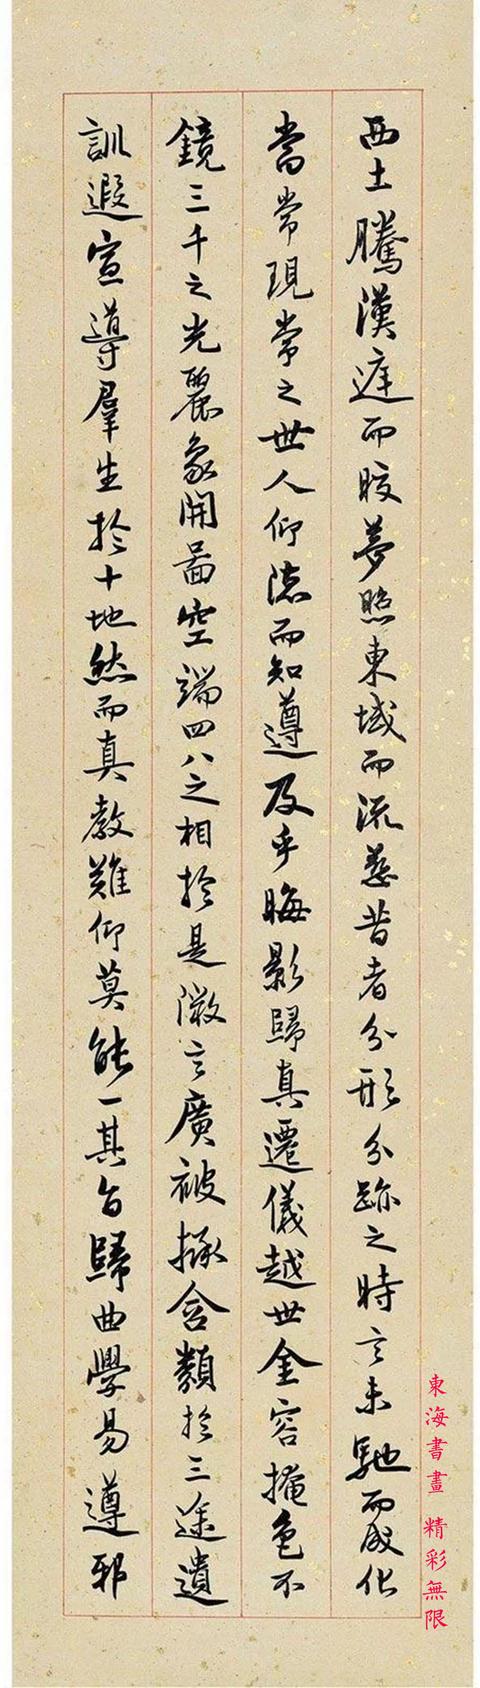 西土騰漢庭而晈夢照東域而流慈昔者分形分跡之時言未馳而成化
當常現常之世人仰德而知遵及乎晦影歸真遷儀越世金容掩色不
鏡三千之光麗象開圖空端四八之相於是微言廣被拯含類於三途遺
訓遐宣導群生於十地然而真教難仰莫能一其旨歸曲學易遵邪
東海書畫 精彩無限